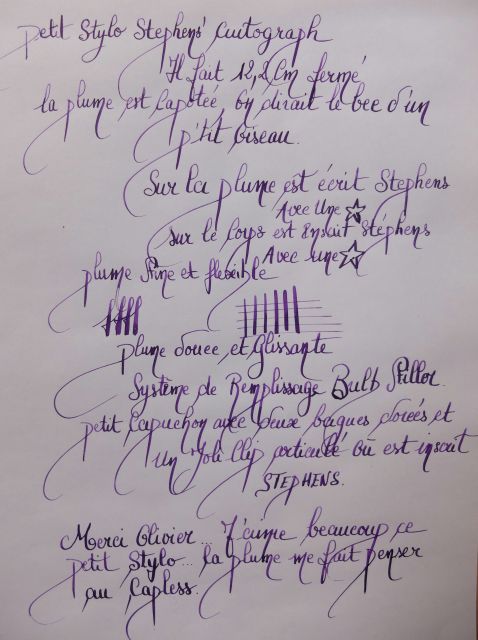 petit Stylo Stephens' autograph
Il fait 12,2 Cm fermé
la plume est Capotée, on dirait le bec d'un
p'tit Oiseau.
Sur la plume est écrit Stephens
Avec Une ☆
sur le Corps est Inscrit Stéphens
Avec une ☆
plume fine et flexible
plume douce et Glissante
Système de Remplissage Bulb Filler.
petit Capuchon avec deux bagues dorées et
un Joli Clip articulé où est inscrit
STEPHENS.
Merci Olivier... J'aime beaucoup ce
petit Stylo... la plume me fait penser
au Capless.